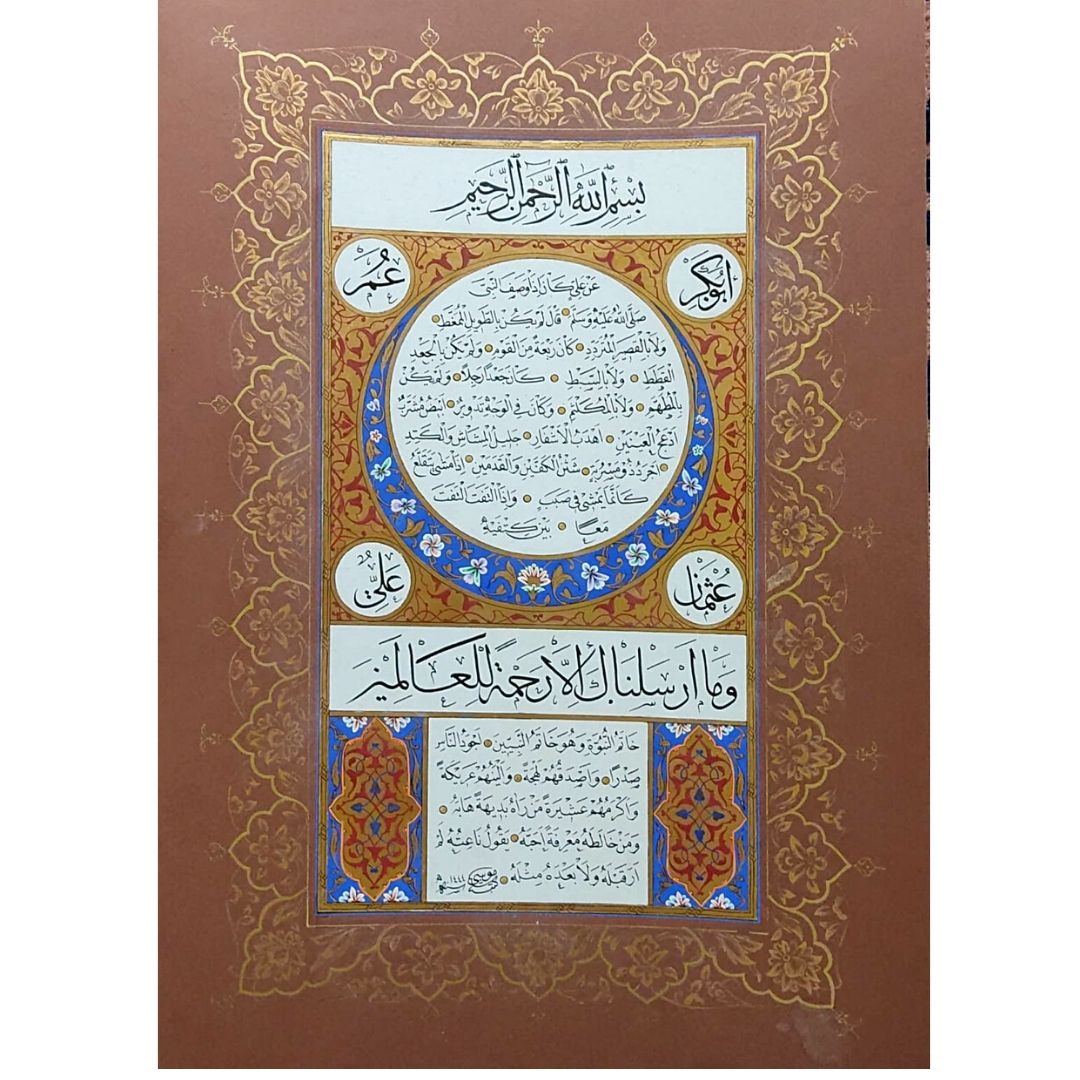 بِسْمِ اللّٰهِ الرَّحْمٰنِ الرَّحِيمِ
ابُوبَكْر
عُمَر
عَنْ عَلِيٍّ كَانَ إِذَا وَصَفَ النَّبِيَّ
صَلَّى اللّٰهُ عَلَيْهِ وَسَلَّمَ قَالَ لَمْ يَكُنْ بِالطَّوِيلِ الْمُمَّغِطِ
وَلَا بِالْقَصِيرِ الْمُتَرَدِّدِ كَانَ رَبْعَةً مِنَ الْقَوْمِ وَلَمْ يَكُنْ بِالْجَعْدِ
الْقَطَطِ وَلَا بِالسَّبِطِ كَانَ جَعْدًا رَجِلًا وَلَمْ يَكُنْ
بِالْمُطَهَّمِ وَلَا بِالْمُكَلْثَمِ وَكَانَ فِي الْوَجْهِ تَدْوِيرٌ اَبْيَضُ مُشْرَبٌ
اَدْعَجُ الْعَيْنَيْنِ اَهْدَبُ الْاَشْفَارِ جَلِيلُ الْمُشَاشِ وَالْكَتَدِ
اَجْرَدُ ذُو مَسْرُبَةٍ شَثْنُ الْكَفَّيْنِ وَالْقَدَمَيْنِ اِذَا مَشَى تَقَلَّعَ
كَاَنَّمَا يَمْشِي فِي صَبَبٍ وَاِذَا الْتَفَتَ الْتَفَتَ
مَعًا بَيْنَ كَتِفَيْهِ
عُثْمَان
عَلِيّ
وَمَا اَرْسَلْنَاكَ اِلَّا رَحْمَةً لِلْعَالَمِينَ
خَاتَمُ النُّبُوَّةِ وَهُوَ خَاتَمُ النَّبِيِّينَ اَجْوَدُ النَّاسِ
صَدْرًا وَاَصْدَقُهُمْ لَهْجَةً وَاَلْيَنُهُمْ عَرِيكَةً
وَاَكْرَمُهُمْ عَشِيرَةً مَنْ رَاٰهُ بَدِيهَةً هَابَهُ
وَمَنْ خَالَطَهُ مَعْرِفَةً اَحَبَّهُ يَقُولُ نَاعِتُهُ لَمْ
اَرَ قَبْلَهُ وَلَا بَعْدَهُ مِثْلَهُ ١٤٤٤